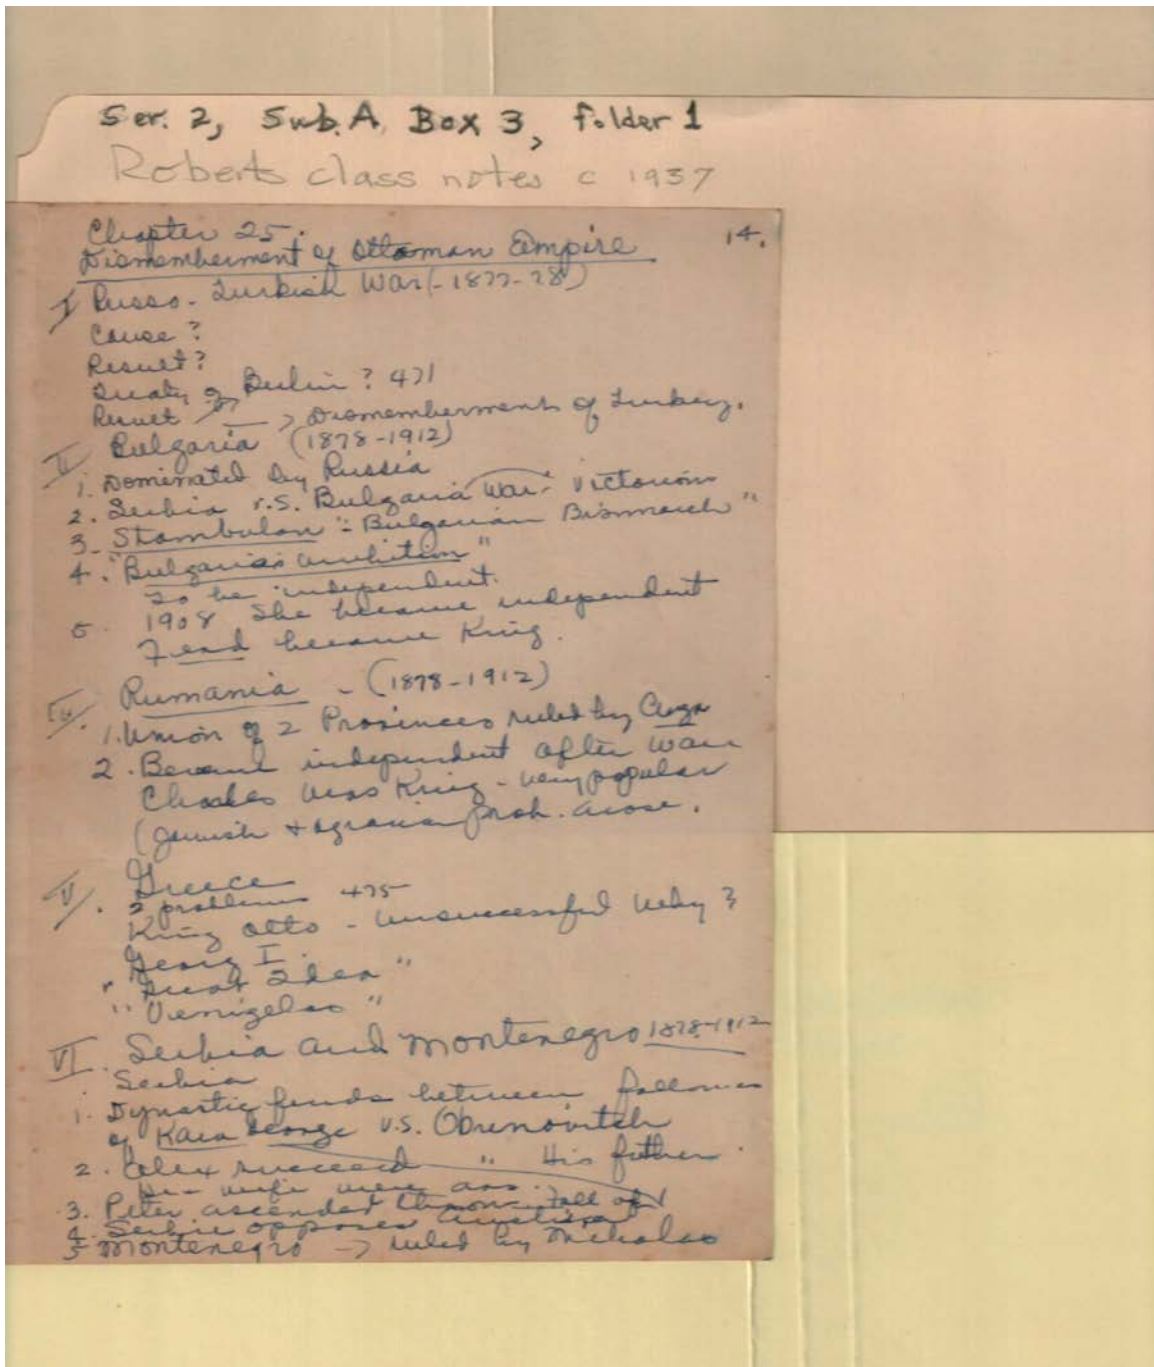 Ser. 2, Sub. A, Box 3, Folder 1
Roberts class notes c 1937
Chapter 25. 14.
Dismemberment of Ottoman Empire
I Russo-Turkish War (-1877-78)
Cause?
Result?
Treaty of Berlin? 471
Result → Dismemberment of Turkey.
II Bulgaria (1878-1912)
1. Dominated by Russia
2. Serbia v.S. Bulgaria War - Victorious
3. Stambulov = "Bulgarian Bismarck"
4. "Bulgaria's ambition"
To be independent.
5. 1908 She became independent
Ferd became King.
Rumania - (1878-1912)
1. Union of 2 Provinces ruled by Cuza
2. Became independent after War
Charles was King - very popular
(Jewish + agrarian prob. arose.
V. Greece
2 problems 475
King Otto - unsuccessful Why?
Georg I.
"Great Idea"
"Venizelos"
VI. Serbia and Montenegro 1878-1912
Serbia
1. Dynastic feuds between followers
of Kara George V.S. Obrenovitch
2. Alex succeed " His father.
He - wife were ass.
3. Peter ascended throne
4. Serbia opposes Austria
5 Montenegro → ruled by Nicholas